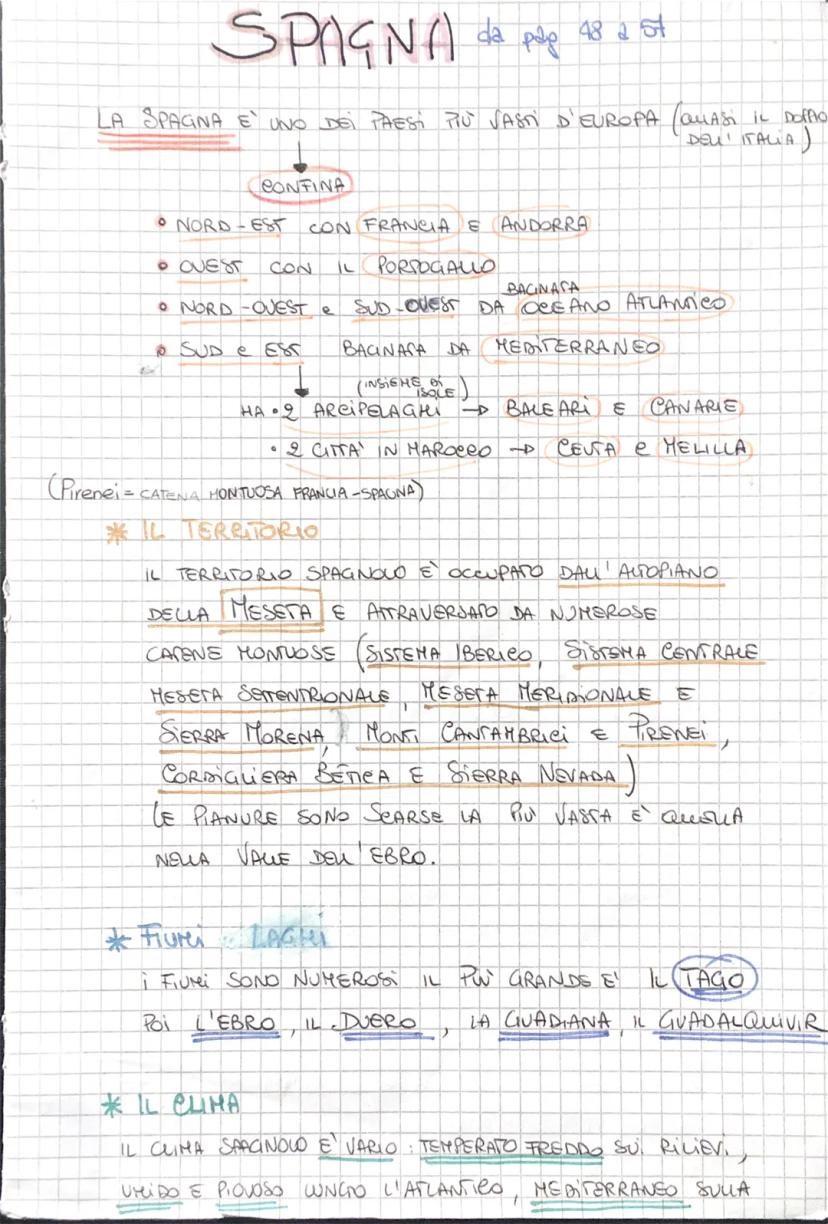 SPAGNA da pag 48 a 57
LA SPAGNA E' UNO DEI PAESI PIÙ VASTI D'EUROPA (QUASI IL DOPPIO
DELL'ITALIA)
CONFINA
NORD-EST CON FRANCIA E ANDORRA
OVEST CON IL PORTOGALLO
BAGNATA
NORD-OVEST e SUD-OVEST DA OCEANO ATLANTICO
SUD e EST BAGNATA DA MEDITERRANEO
(INSIEME DI
ISOLE)
HA • 2 ARCIPELAGHI → BALEARI E CANARIE
• 2 CITTA' IN MAROCCO → CEUTA e MELILLA
(Pirenei = CATENA MONTUOSA FRANCIA-SPAGNA)
* IL TERRITORIO
IL TERRITORIO SPAGNOLO E' OCCUPATO DALL'ALTOPIANO
DELLA MESETA E ATTRAVERSATO DA NUMEROSE
CATENE MONTUOSE (SISTEMA IBERICO, SISTEMA CENTRALE
MESETA SETTENTRIONALE, MESETA MERIDIONALE E
SIERRA MORENA, MONTI CANTAMBRICI E PIRENEI,
CORDIGLIERA BETICA E SIERRA NEVADA)
LE PIANURE SONO SCARSE LA PIÙ VASTA E' QUELLA
NELLA VALLE DELL'EBRO.
* FIUMI LAGHI
I FIUMI SONO NUMEROSI IL PIÙ GRANDE E' IL TAGO
POI L'EBRO, IL DUERO, LA GUADIANA, IL GUADALQUIVIR
* IL CLIMA
IL CLIMA SPAGNOLO E' VARIO: TEMPERATO FREDDO SUI RILIEVI,
UMIDO E PIOVOSO LUNGO L'ATLANTICO, MEDITERRANEO SULLA